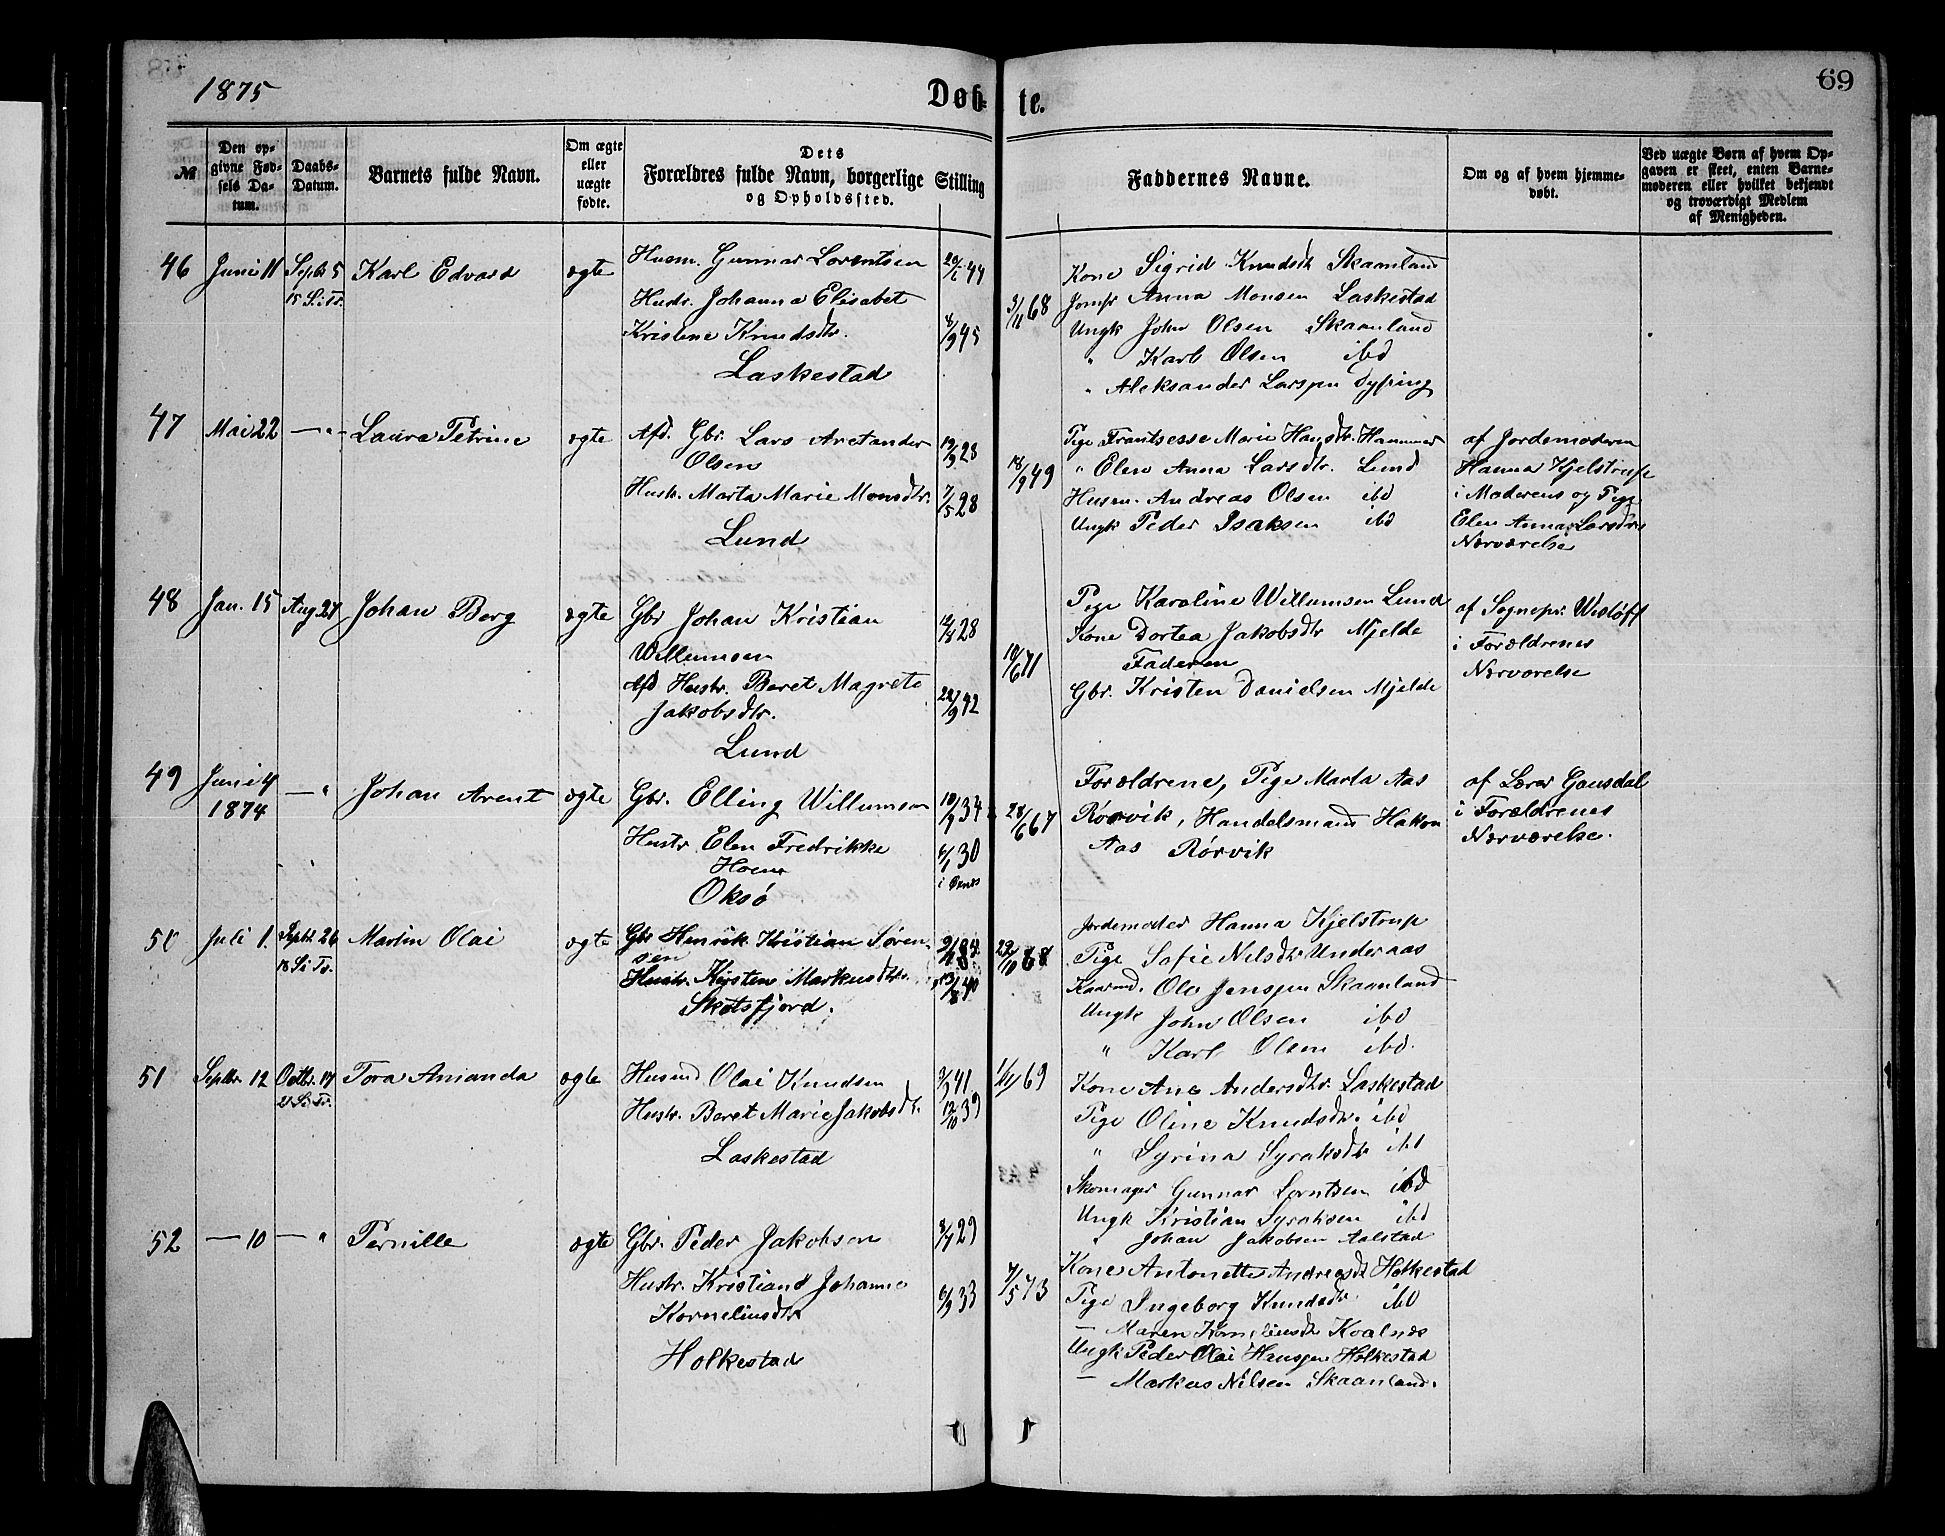 1875
Døb-
te.
69
№
Den op-
givne Fød-
sels Da-
tum.
Daabs-
Datum.
Barnets fulde Navn.
Om ægte
eller
uægte
fødte.
Dets
Forældres fulde Navn, borgerlige Stilling
og Opholdssted.
Faddernes Navne.
Om og af hvem hjemme-
døbt.
Ved uægte Børn af hvem Op-
gaven er skeet, enten Barne-
moderen eller hvilket bekjendt
og troværdigt Medlem
af Menigheden.
46 Juni 11 Septr 5 Karl Edvard ægte Husm. Gunnar Lorentsen
15 S. Tr.
Hustr. Johanna Elisabet
Kristine Knudsdtr. 8/9 45
Laskestad
3/11 68
Kone Sigrid Knudsdt Skaanland
Jomfr Anna Monsen Laskestad
Ungk John Olsen Skaanland
" Karl Olsen ibd
" Aleksander Larssen Dyping
47 Mai 22 — " — Laura Petrine ægte Afd. Gbr. Lars Aretander 19/3 28
Olsen
Hustr. Marta Marie Monsdtr. 7/5 28
Lund
18/9 49
Pige Frantsesse Marie Hansdtr. Hammer
" Elen Anna Larsdtr. Lund
Husm. Andreas Olsen ibd
Ungk Peder Isaksen ibd
af Jordemoderen
Hanna Kjelstrup
i Moderens og Pige
Elen Anna Larsdtrs
Nærværelse
48 Jan. 15 Aug 27 Johan Berg ægte Gbr Johan Kristian 28
Willumsen
Afd Hustr. Beret Magrete 22/9 42
Jakobsdtr.
Lund
10/6 71
Pige Karoline Willumsen Lund
Kone Dortea Jakobsdtr Mjelde
Faderen
Gbr. Kristen Danielsen Mjelde
af Sognepr. Wisløff
i Forældrenes
Nærværelse
49 Juni 4 — " Johan Arent ægte Gbr. Elling Willumsen 10/9 34
1874
Hustr Elen Fredrikke 6/1 30
Hoem
Oksø
28/6 67
Forældrene, Pige Marta Aas
Rørvik, Handelsmand Hakon
Aas Rørvik
af Lærer Gausdal
i Forældrenes
Nærværelse.
50 Juli 1. Septr. 26 Martin Olai ægte Gbr Henrik Kristian Søren-
18 S. Tr. sen
Hustr. Kirsten Markusdtr. 13/8 40
Skotsfjord.
23/10 68
Jordemoder Hanna Kjelstrup
Pige Sofie Nilsdtr Underaas
Kaarmd. Ole Jenssen Skaanland
Ungk John Olsen ibd
" Karl Olsen ibd.
51 Septbr. 12 Octbr. 17 Tora Amanda ægte Husmd Olai Knudsen 41
21 S. Tr.
Hustr. Beret Marie Jakobsdt. 12/10 39
Laskestad
69
Kone Ane Andersdtr. Laskestad
Pige Oline Knudsdtr. ibd
" Syrina Syraksdtr ibd
Skomager Gunnar Lorntsen ibd
Ungk Kristian Syraksen ibd
" Johan Jakobsen Aalstad
52 — 10 — " Pernille ægte Gbr. Peder Jakobsen 29
Hustr. Kristiane Johanne 6/9 33
Korneliusdtr
Holkestad
7/5 73
Kone Antonette Andreasdt Holkestad
Pige Ingeborg Knudsdtr. ibd
— Maren Korneliusdtr Koalnes
Ungk Peder Olai Hanssen Holkestad
— Markus Nilsen Skaanland.